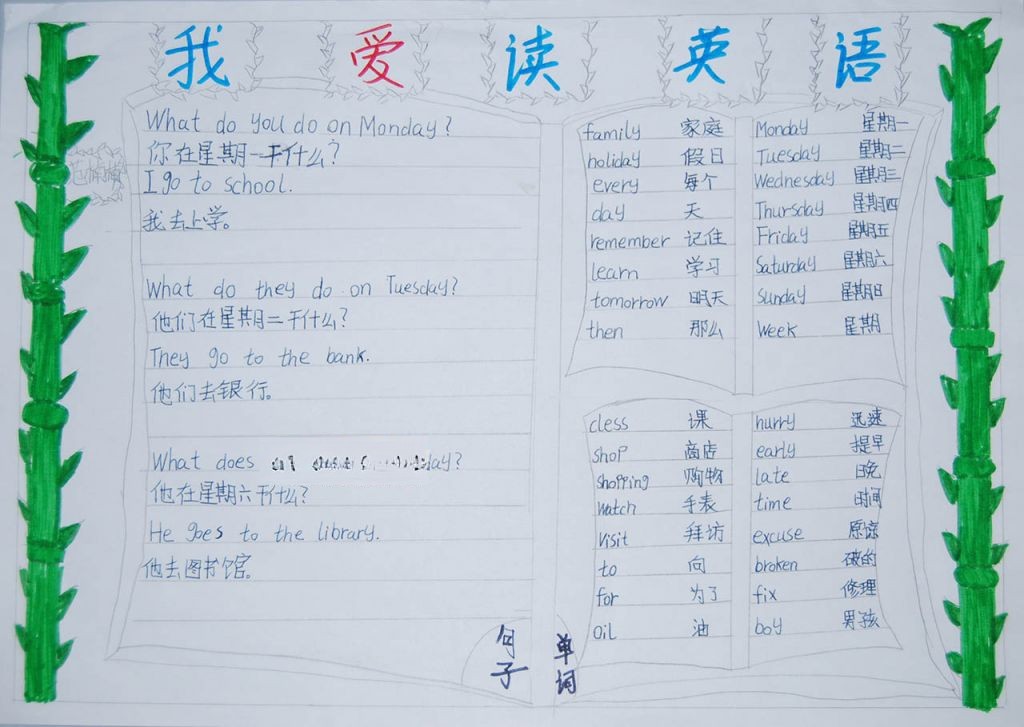 我爱读英语
What do you do on Monday?
你在星期一干什么?
I go to school.
我去上学。
What do they do on Tuesday?
他们在星期二干什么?
They go to the bank.
他们去银行。
What does
他在星期六干什么?
He goes to the library.
他去图书馆。
句子
family 家庭
holiday 假日
every 每个
day 天
remember 记住
learn 学习
tomorrow 明天
then 那么
Monday 星期一
Tuesday 星期二
Wednesday 星期三
Thursday 星期四
Friday 星期五
Saturday 星期六
Sunday 星期日
Week 星期
cless 课
shop 商店
shopping 购物
watch 手表
visit 拜访
to 向
for 为了
oil 油
hurry 迅速
early 提早
late 晚
time 时间
excuse 原谅
broken 破的
fix 修理
boy 男孩
单词